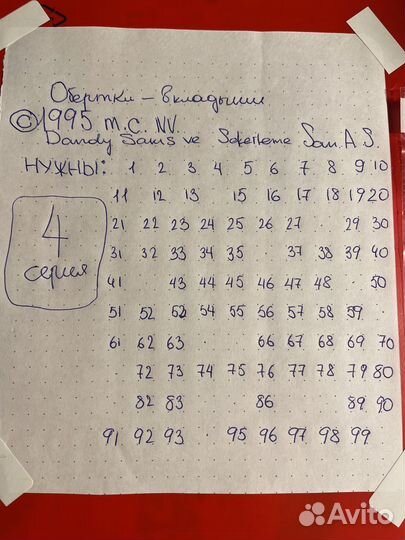 Обертки – вкладыши
© 1995 M.C. NV.
Dandy Sakis ve Sekerleme San. A S.
НУЖНЫ: 1 2 3 4 5 6 7 8 9 10
11 12 13 · 15 16 17 18 19 20
4
серия
21 22 23 24 25 26 27 · 29 30
31 32 33 34 35 · 37 38 39 40
41 · 43 44 45 46 47 48 · 50
51 52 53 54 55 56 57 58 59 ·
61 62 63 · 66 67 68 69 70
72 73 74 75 76 77 78 79 80
82 83 86 89 90
91 92 93 · 95 96 97 98 99
Avito